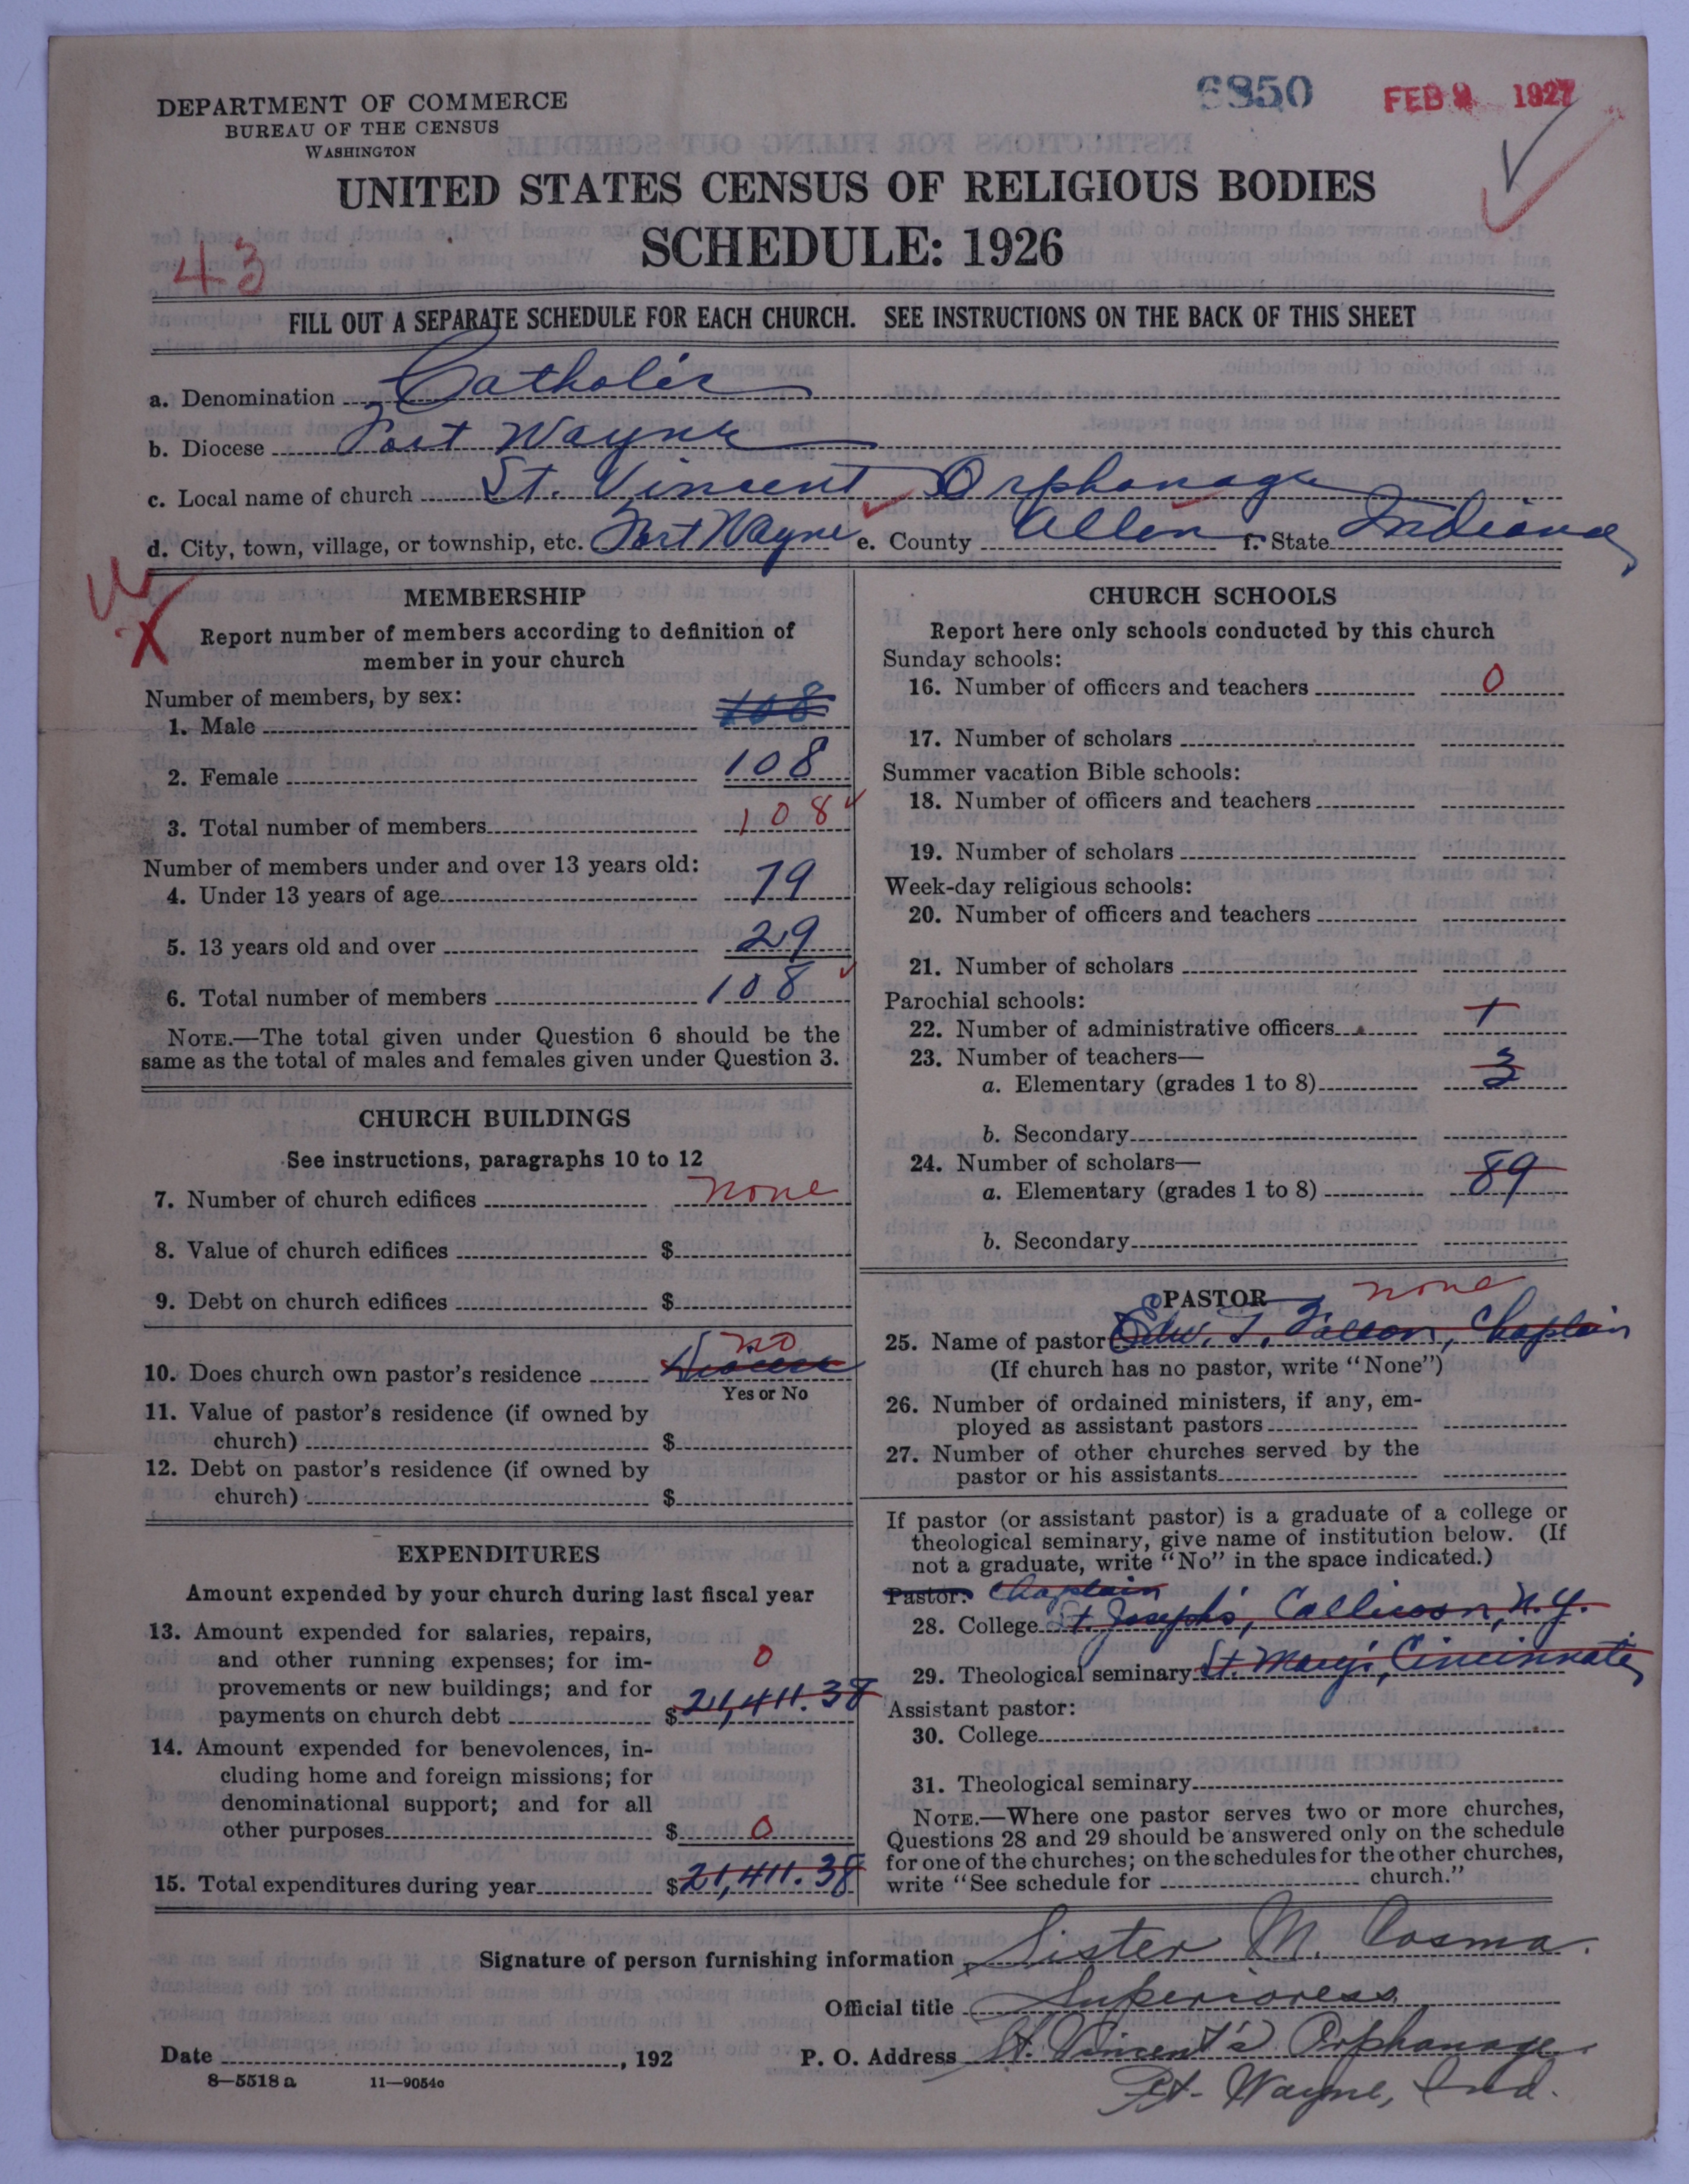 DEPARTMENT OF COMMERCE
BUREAU OF THE CENSUS
WASHINGTON
6850
FEB 9 1927
UNITED STATES CENSUS OF RELIGIOUS BODIES
SCHEDULE: 1926
43
FILL OUT A SEPARATE SCHEDULE FOR EACH CHURCH. SEE INSTRUCTIONS ON THE BACK OF THIS SHEET
a. Denomination Catholic
b. Diocese Fort Wayne
c. Local name of church St. Vincent Orphanage
d. City, town, village, or township, etc. Fort Wayne e. County Allen f. State Indiana
MEMBERSHIP
Report number of members according to definition of
member in your church
Number of members, by sex:
1. Male 108
2. Female 108
3. Total number of members 108
Number of members under and over 13 years old:
4. Under 13 years of age 79
5. 13 years old and over 29
6. Total number of members 108
NOTE.—The total given under Question 6 should be the
same as the total of males and females given under Question 3.
CHURCH BUILDINGS
See instructions, paragraphs 10 to 12
7. Number of church edifices none
8. Value of church edifices $
9. Debt on church edifices $
10. Does church own pastor's residence no
Yes or No
11. Value of pastor's residence (if owned by
church) $
12. Debt on pastor's residence (if owned by
church) $
EXPENDITURES
Amount expended by your church during last fiscal year
13. Amount expended for salaries, repairs,
and other running expenses; for im-
provements or new buildings; and for
payments on church debt $ 0 21,411.38
14. Amount expended for benevolences, in-
cluding home and foreign missions; for
denominational support; and for all
other purposes $ 0
15. Total expenditures during year $21,411.38
CHURCH SCHOOLS
Report here only schools conducted by this church
Sunday schools:
16. Number of officers and teachers 0
17. Number of scholars
Summer vacation Bible schools:
18. Number of officers and teachers
19. Number of scholars
Week-day religious schools:
20. Number of officers and teachers
21. Number of scholars
Parochial schools:
22. Number of administrative officers 1
23. Number of teachers—
a. Elementary (grades 1 to 8) 3
b. Secondary
24. Number of scholars—
a. Elementary (grades 1 to 8) 89
b. Secondary
PASTOR none
25. Name of pastor Edw. J. Chaplain
(If church has no pastor, write "None")
26. Number of ordained ministers, if any, em-
ployed as assistant pastors
27. Number of other churches served by the
pastor or his assistants
If pastor (or assistant pastor) is a graduate of a college or
theological seminary, give name of institution below. (If
not a graduate, write "No" in the space indicated.)
Pastor: Chaplain
28. College St. Joseph's, Callicoon, N.Y.
29. Theological seminary St. Mary's, Cincinnati
Assistant pastor:
30. College
31. Theological seminary
NOTE.—Where one pastor serves two or more churches,
Questions 28 and 29 should be answered only on the schedule
for one of the churches; on the schedules for the other churches,
write "See schedule for church."
Signature of person furnishing information Sister M. Cosma.
Official title Superioress
Date , 192 P. O. Address St. Vincent's Orphanage
8—5518 a 11—9054c
Ft. Wayne, Ind.